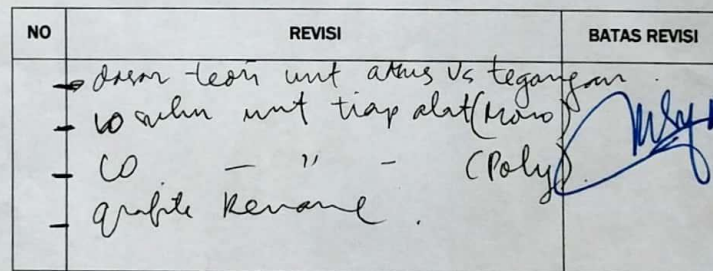 NO REVISI BATAS REVISI
- dasar teori unt arus vs tegangan.
- suhu unt tiap alat (Mono)
- CO — " — (Poly).
- grafik .